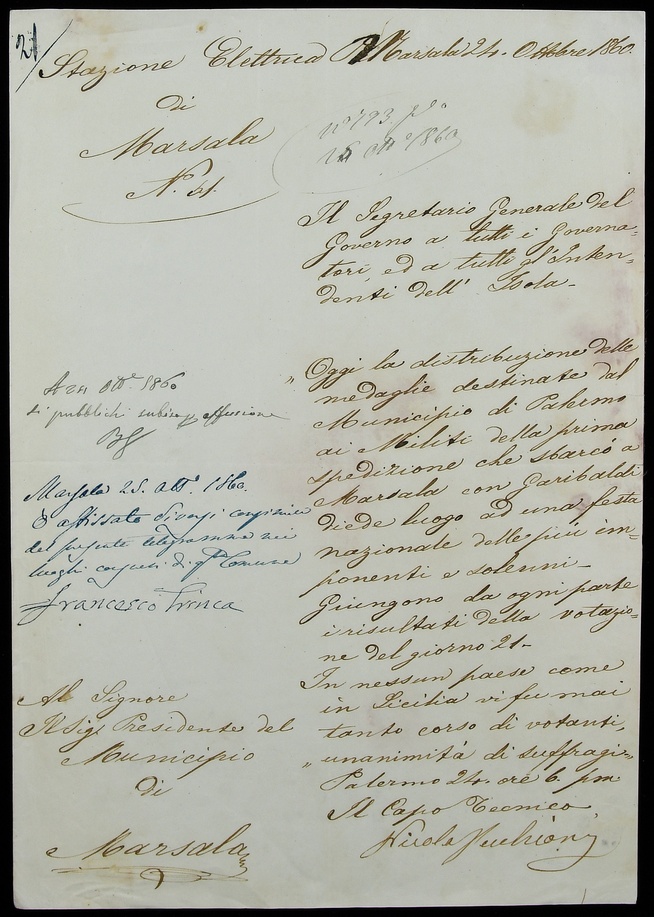 21
Stazione Elettrica
di
Marsala
N. 21.
Marsala 24. Ottobre 1860.
n° 793
Il Segretario Generale del
Governo a tutti i Governa=
tori, ed a tutti gl'Inten=
denti dell' Isola -
" Oggi la distribuzione delle
medaglie destinate dal
Municipio di Palermo
ai Militi della prima
spedizione che sbarcò a
Marsala con Garibaldi
diede luogo ad una festa
nazionale delle più im=
ponenti e solenni -
Giungono da ogni parte
i risultati della votazio=
ne del giorno 21 -
In nessun paese come
in Sicilia vi fu mai
tanto corso di votanti,
" unanimità di suffragi "
Palermo 24. ore 6. pm.
Il Capo Tecnico
A 24 Ott.e 1860
si pubblichi subito affissione
Marsala 25. Ott.e 1860.
È affissato diversi
del presente telegramma nei
luoghi di q.ta Comune
Francesco Trinca
Al Signore
Il Sig.e Presidente del
Municipio
di
Marsala